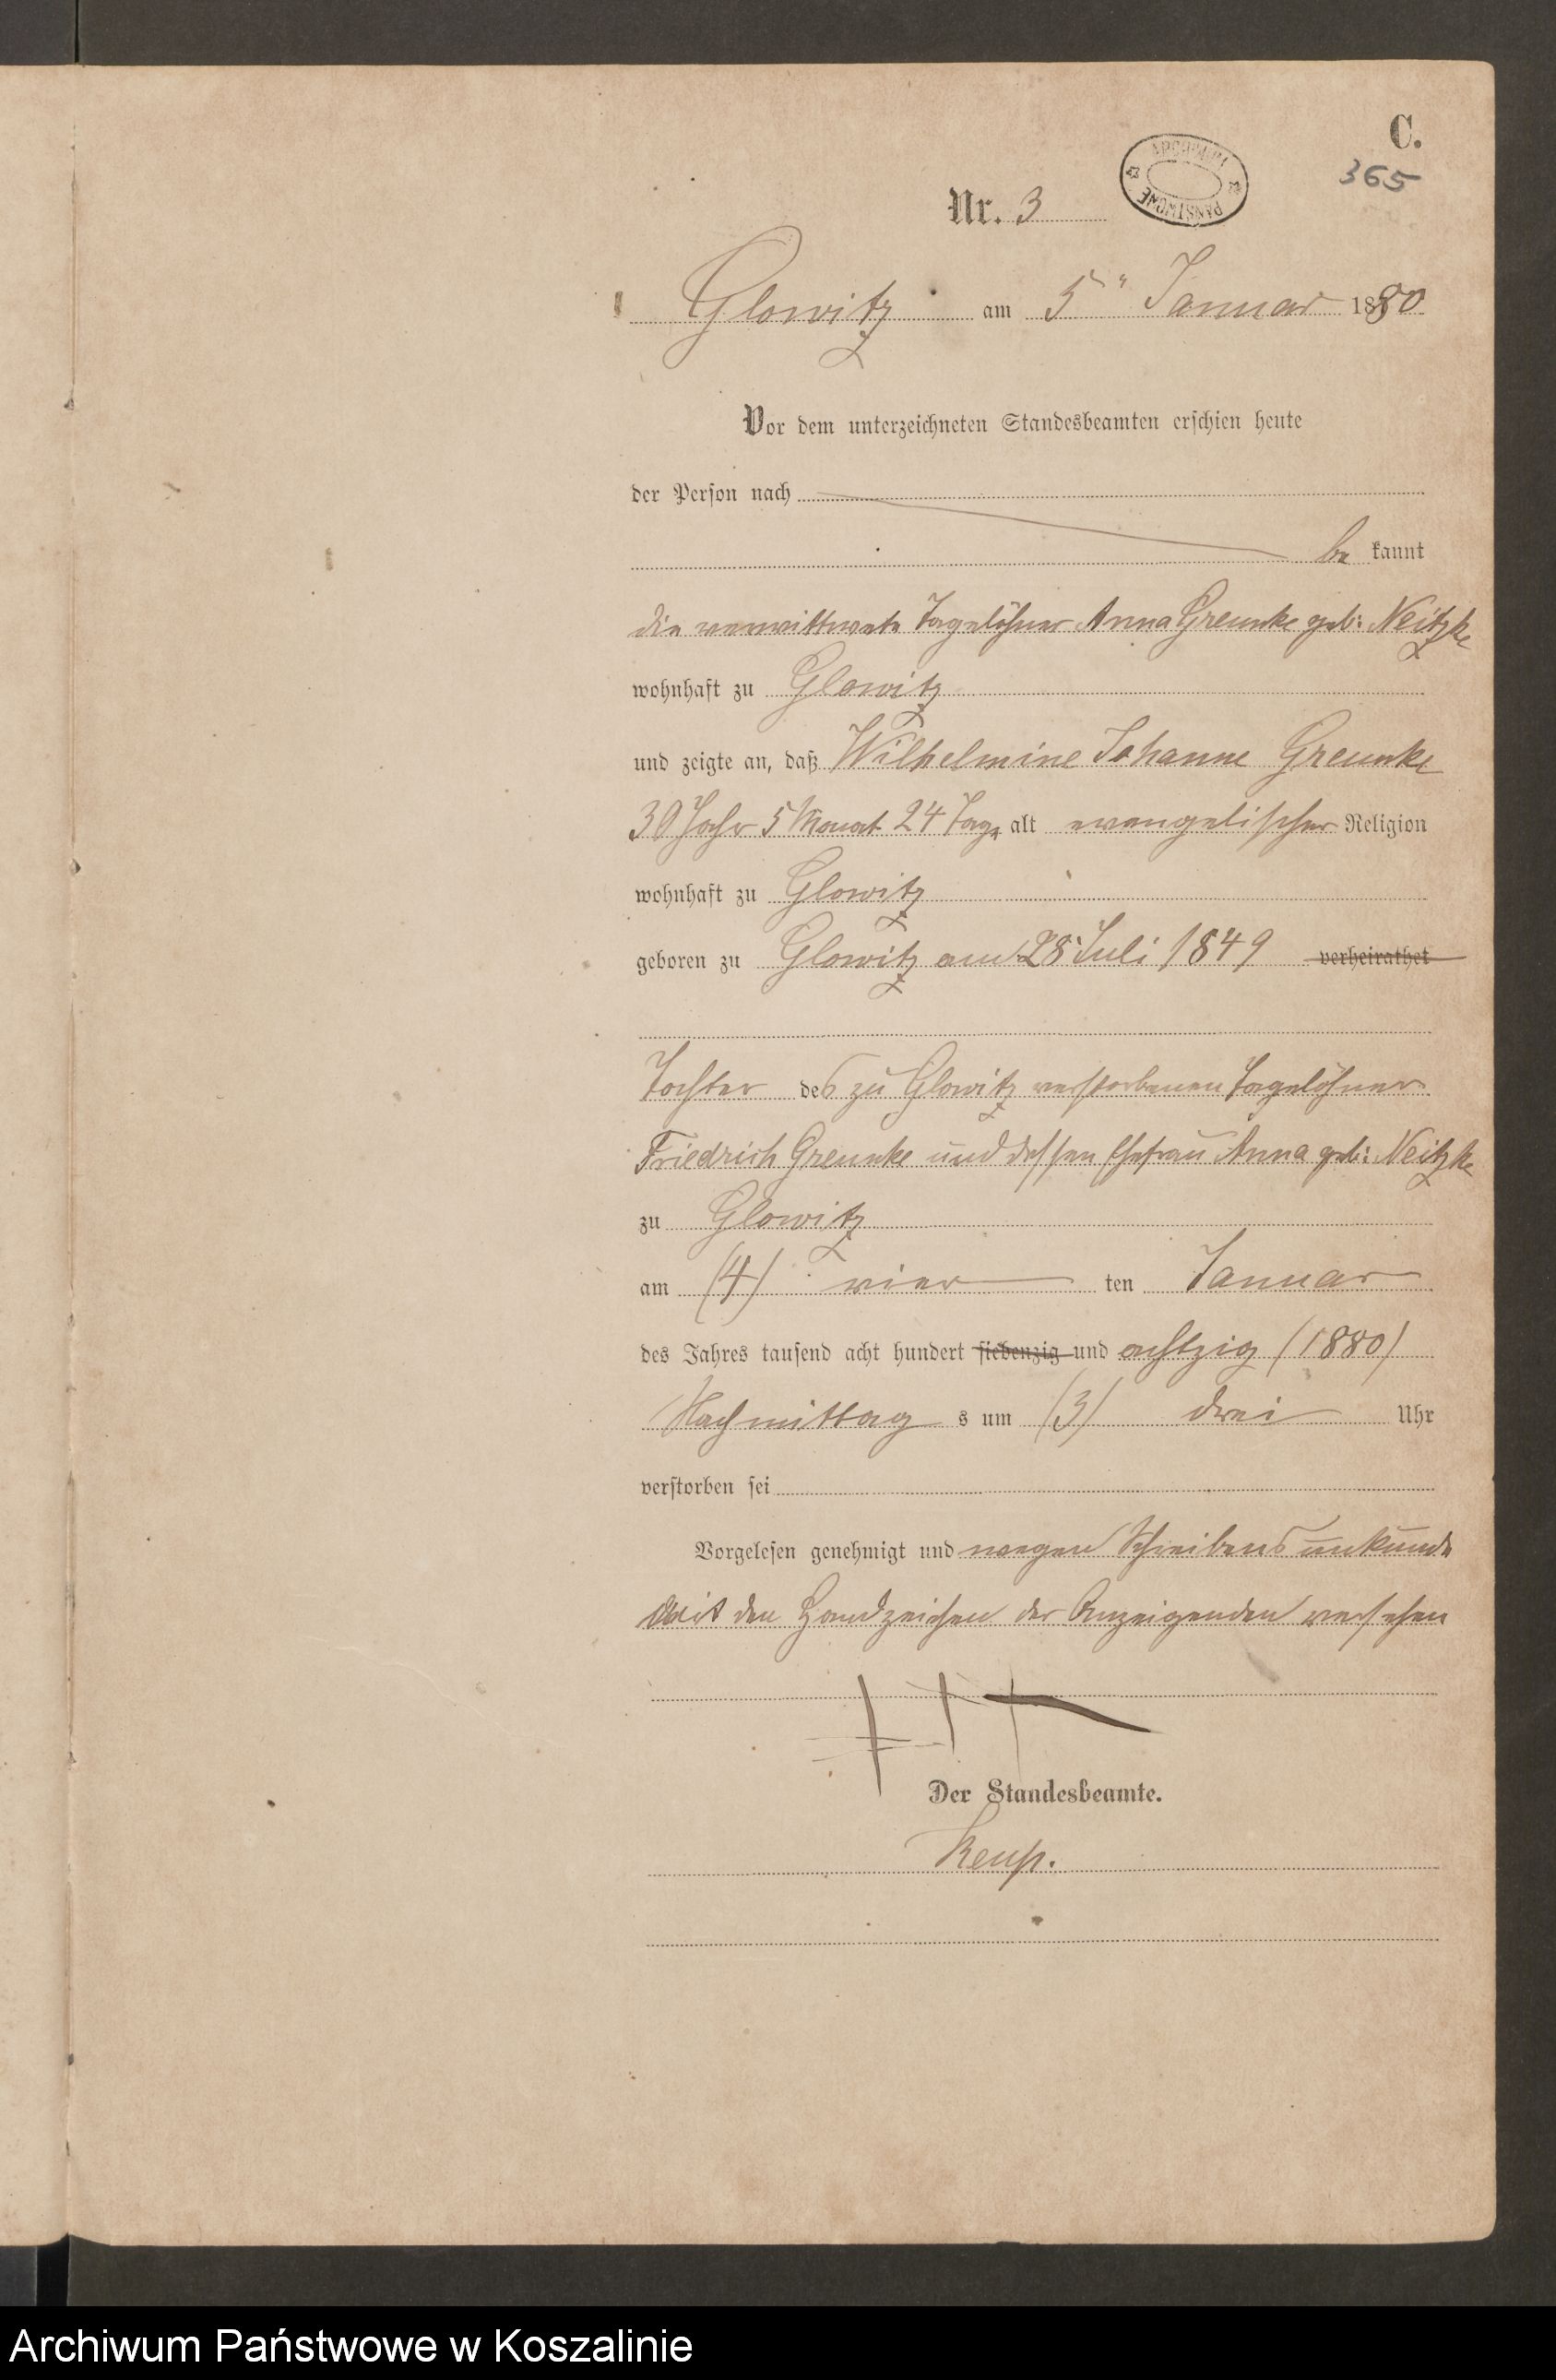 C.
365
ARCHIWUM PAŃSTWOWE
Nr. 3
Glowitz am 5" Januar 1880
Vor dem unterzeichneten Standesbeamten erschien heute
der Person nach
be kannt
die verwittwete Tagelöhner Anna Greunke geb: Neitzke
wohnhaft zu Glowitz
und zeigte an, daß Wilhelmine Johanne Greunke
30 Jahr 5 Monat 24 Tage alt evangelischer Religion
wohnhaft zu Glowitz
geboren zu Glowitz am 28 Juli 1849 verheirathet
Tochter des zu Glowitz verstorbenen Tagelöhner
Friedrich Greunke und dessen Ehefrau Anna geb: Neitzke
zu Glowitz
am (4) vier ten Januar
des Jahres tausend acht hundert siebenzig und achtzig (1880)
Nachmittag s um (3) drei Uhr
verstorben sei
Vorgelesen genehmigt und wegen Schreibens unkunde
mit den Handzeichen der Anzeigenden versehen
+ + +
Der Standesbeamte.
Archiwum Państwowe w Koszalinie